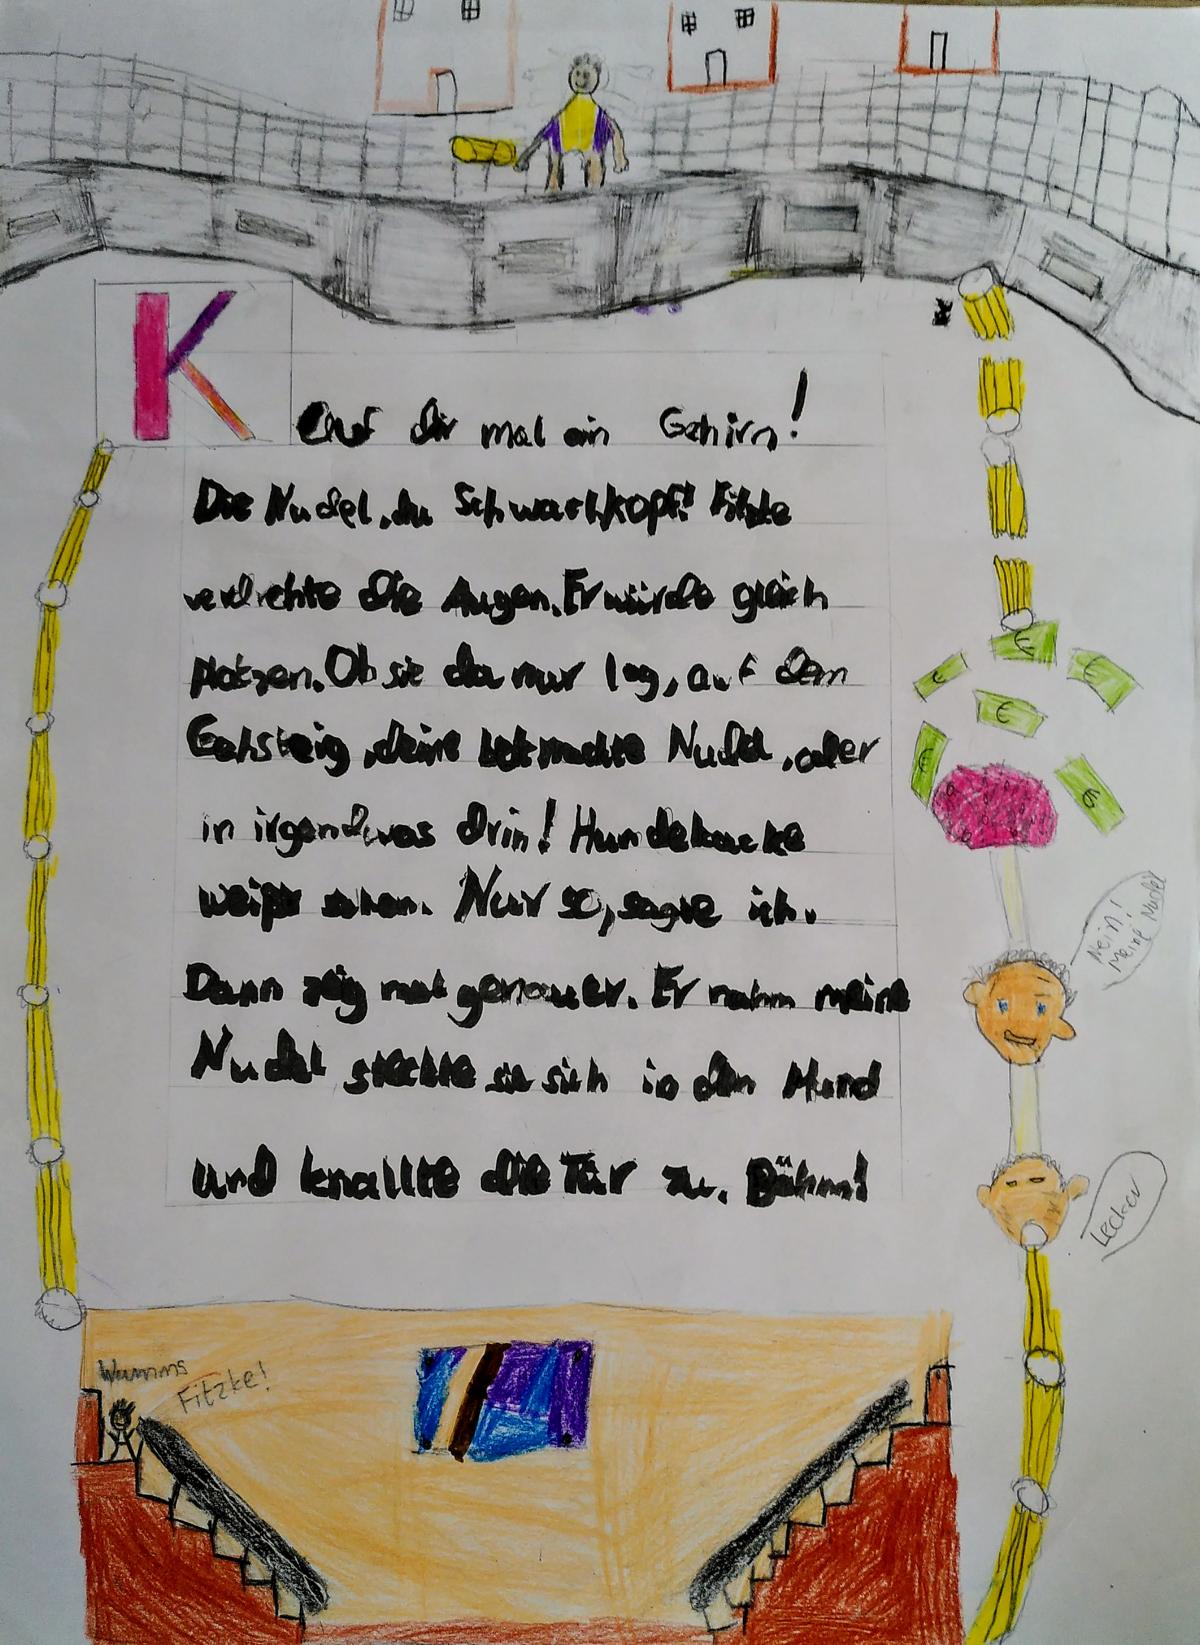 Kauf dir mal ein Gehirn!
Die Nudel, du Schwachkopf! Fitzke
verdrehte die Augen. Er würde gleich
platzen. Ob sie da nur lag, auf dem
Gehsteig, deine beknackte Nudel, oder
in irgendwas drin! Hundekacke
weißt schon. Nur so, sagte ich.
Dann zeig mal genauer. Er nahm meine
Nudel steckte sie sich in den Mund
und knallte die Tür zu. Bähm!
Nein!
Meine Nudel
Lecker
Wumms
Fitzke!